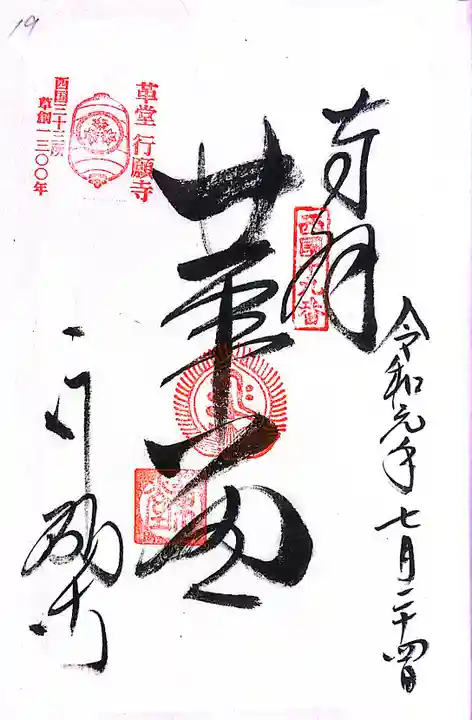 奉拝
西國十九番
令和元年七月二十四日
革堂
行願寺
革堂 行願寺
西国三十三所
草創一三〇〇年
19